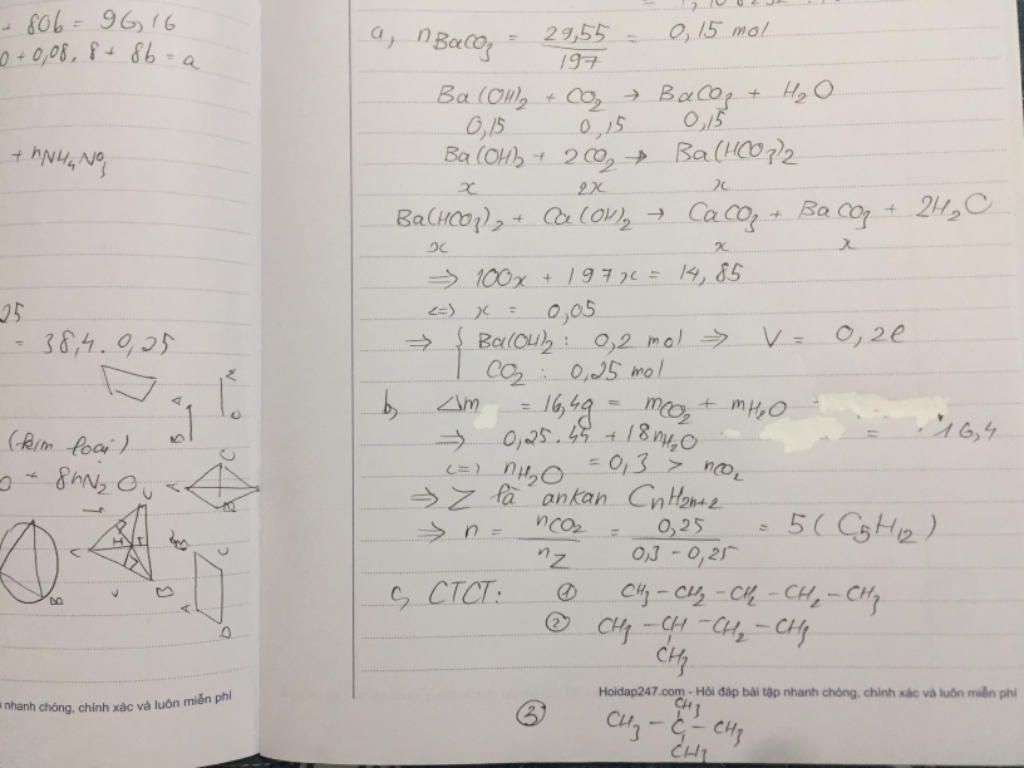 + 80b = 96,16
0 + 0,08. 8 + 8b = a
+ nNH₄NO₃
25
= 38,4. 0,25
(kim loại)
+ 8nN₂O
nhanh chóng, chính xác và luôn miễn phí
a, nBaCO₃ = 29,55/197 = 0,15 mol
Ba(OH)₂ + CO₂ → BaCO₃ + H₂O
0,15 0,15 0,15
Ba(OH)₂ + 2CO₂ → Ba(HCO₃)₂
x 2x x
Ba(HCO₃)₂ + Ca(OH)₂ → CaCO₃ + BaCO₃ + 2H₂O
x x x
⇒ 100x + 197x = 14,85
<=> x = 0,05
⇒ { Ba(OH)₂ : 0,2 mol ⇒ V = 0,2l
CO₂ : 0,25 mol
b, Δm = 16,4g = mCO₂ + mH₂O
⇒ 0,25.44 + 18nH₂O = 16,4
<=> nH₂O = 0,3 > nCO₂
⇒ Z là ankan CnH2n+2
⇒ n = nCO₂/nZ = 0,25/0,3 - 0,25 = 5 (C₅H₁₂)
c, CTCT: ① CH₃ - CH₂ - CH₂ - CH₂ - CH₃
② CH₃ - CH - CH₂ - CH₃
CH₃
Hoidap247.com - Hỏi đáp bài tập nhanh chóng, chính xác và luôn miễn phí
CH₃
③ CH₃ - C - CH₃
CH₃